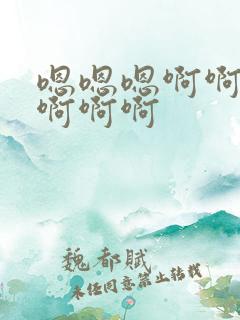 嗯嗯嗯啊啊
啊啊啊
魏都賦
未经同意禁止转载